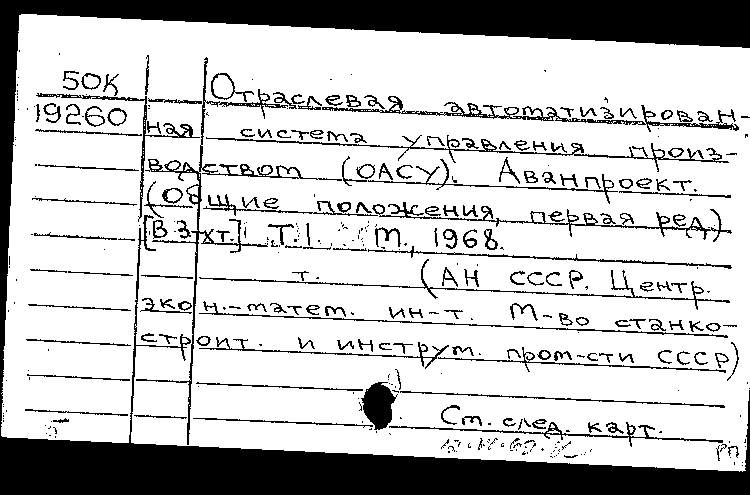 50К Отраслевая автоматизирован-
19260 ная система управления произ-
водством (ОАСУ). Аванпроект.
(Общие положения, первая ред.)
[В 3-хт.] Т.1. М., 1968.
т. (АН СССР. Центр.
экон.-матем. ин-т. М-во станко-
строит. и инструм. пром-сти СССР)
См. след. карт.
РП